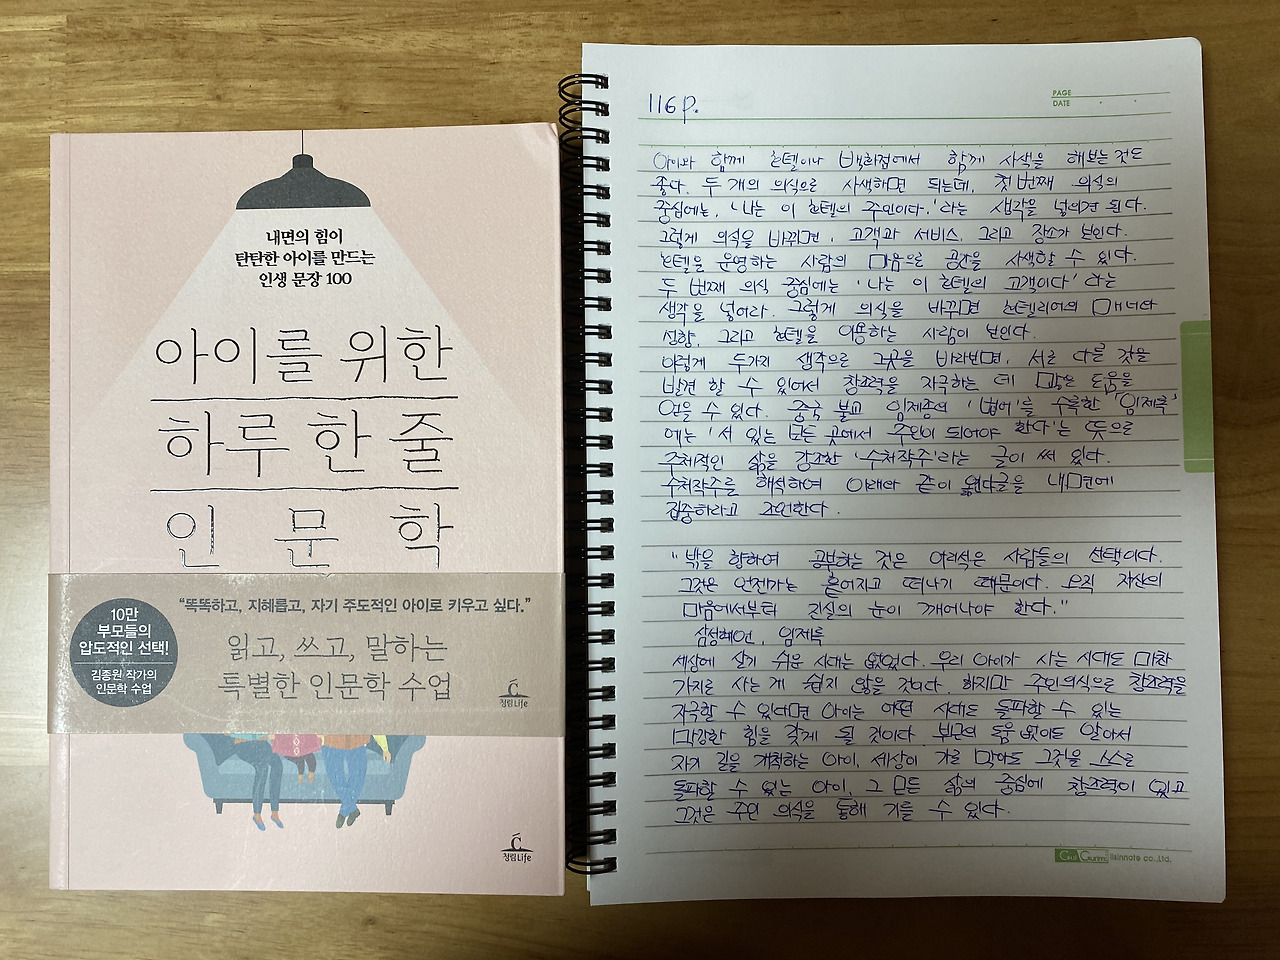 내면의 힘이
탄탄한 아이를 만드는
인생 문장 100
아이를 위한
하루 한 줄
인문학
10만
부모들의
압도적인 선택!
김종원 작가의
인문학 수업
“똑똑하고, 지혜롭고, 자기 주도적인 아이로 키우고 싶다.”
읽고, 쓰고, 말하는
특별한 인문학 수업
청림Life
청림Life
PAGE
DATE
116p.
아이와 함께 호텔이나 백화점에서 함께 사색을 해보는 것도
좋다. 두 개의 의식으로 사색하면 되는데, 첫 번째 의식의
중심에는, '나는 이 호텔의 주인이다.'라는 생각을 넣으면 된다.
그렇게 의식을 바꾸면, 고객과 서비스, 그리고 장소가 보인다.
호텔을 운영하는 사람의 마음으로 공간을 사색할 수 있다.
두 번째 의식 중심에는 '나는 이 호텔의 고객이다'라는
생각을 넣어라. 그렇게 의식을 바꾸면 호텔리어의 매너와
성향, 그리고 호텔을 이용하는 사람이 보인다.
이렇게 두가지 생각으로 그곳을 바라보면, 서로 다른 것을
발견 할 수 있어서 창조력을 자극하는 데 많은 도움을
얻을 수 있다. 중국 불교 임제종의 '법어'를 수록한 「임제록」
에는 '서 있는 모든 곳에서 주인이 되어야 한다'는 뜻으로
주체적인 삶을 강조한 '수처작주'라는 글이 써 있다.
수처작주를 해석하여 아래와 같이 내면에
집중하라고 조언한다.
"밖을 향하여 공부하는 것은 어리석은 사람들의 선택이다.
그것은 언젠가는 흩어지고 떠나기 때문이다. 오직 자신의
마음에서부터 진실의 눈이 깨어나야 한다."
삼성혜연, 임제록
세상에 살기 쉬운 시대는 없었다. 우리 아이가 사는 시대도 마찬
가지로 사는 게 쉽지 않을 것이다. 하지만 주인의식으로 창조력을
자극할 수 있다면 아이는 어떤 시대도 돌파할 수 있는
막강한 힘을 갖게 될 것이다. 부모의 도움 없이도 알아서
자기 길을 개척하는 아이, 세상이 가로 막아도 그것을 스스로
돌파할 수 있는 아이, 그 모든 삶의 중심에 창조력이 있고
그것은 주인 의식을 통해 기를 수 있다.
ilsinnote co.,Ltd.